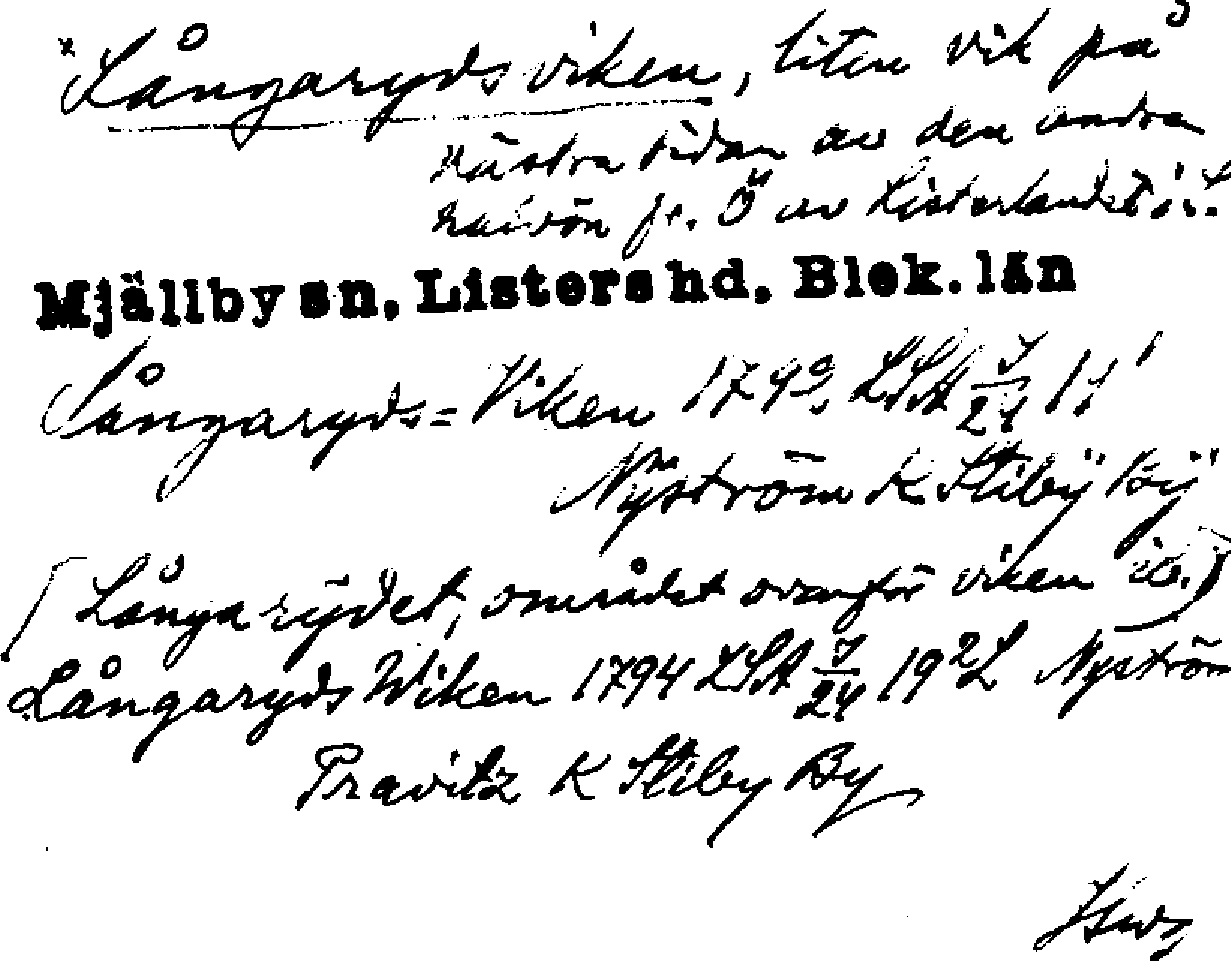 *Långarydsviken, liten vik på
västra sidan av den andra
halvön fr. Ö av Listerlandet i S.
Mjällby sn, Listers hd. Blek. län
Långaryds=Viken 1793. LSA J/24 1:1
Nyström K Stiby By
[Långarydet, området ovanför viken ib.)
Långaryds Wiken 1794 LSA J/24 19²L Nyström
Pravitz K Stiby By